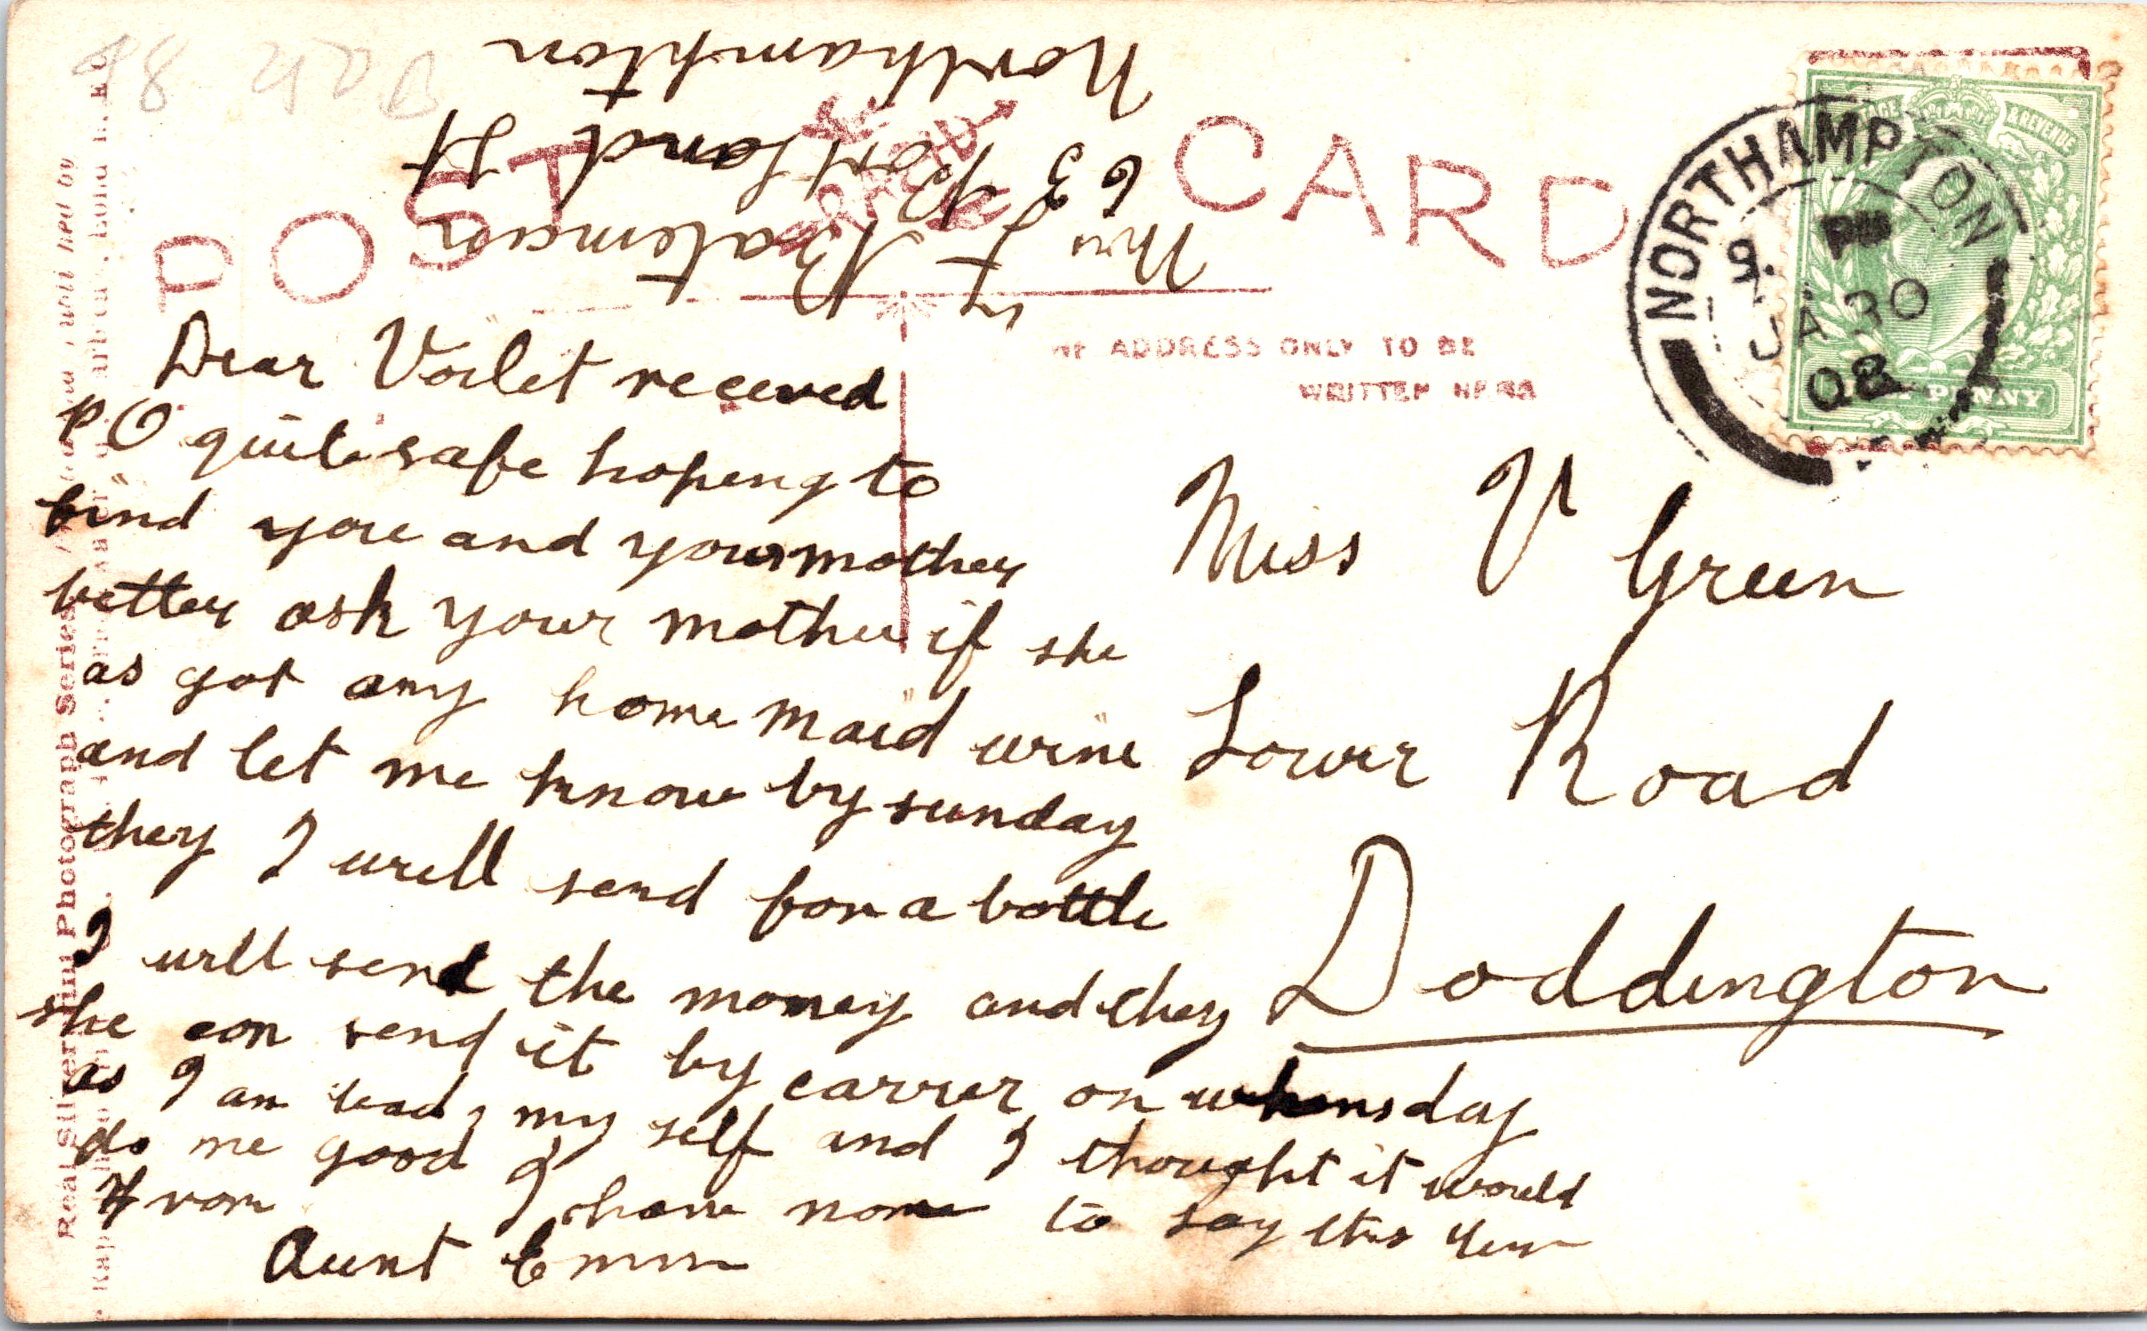 Northampton
63 Portland St
Bateman
POST CARD
THE ADDRESS ONLY TO BE
WRITTEN HERE
NORTHAMPTON
9. PM
JA 30
08
& REVENUE
PENNY
Dear Voilet receved
PO quite safe hopeng to
find you and your mother
better ask your mother if she
as got any home maid wine
and let me know by sunday
they I will send for a bottle
I will send the money and they
she can send it by carrer on whensday
as I am bead, my self and I thought it would
do me good I have none to say this
From
Aunt Emm
Miss V Green
Lower Road
Doddington
Real Silverprint Photograph Series